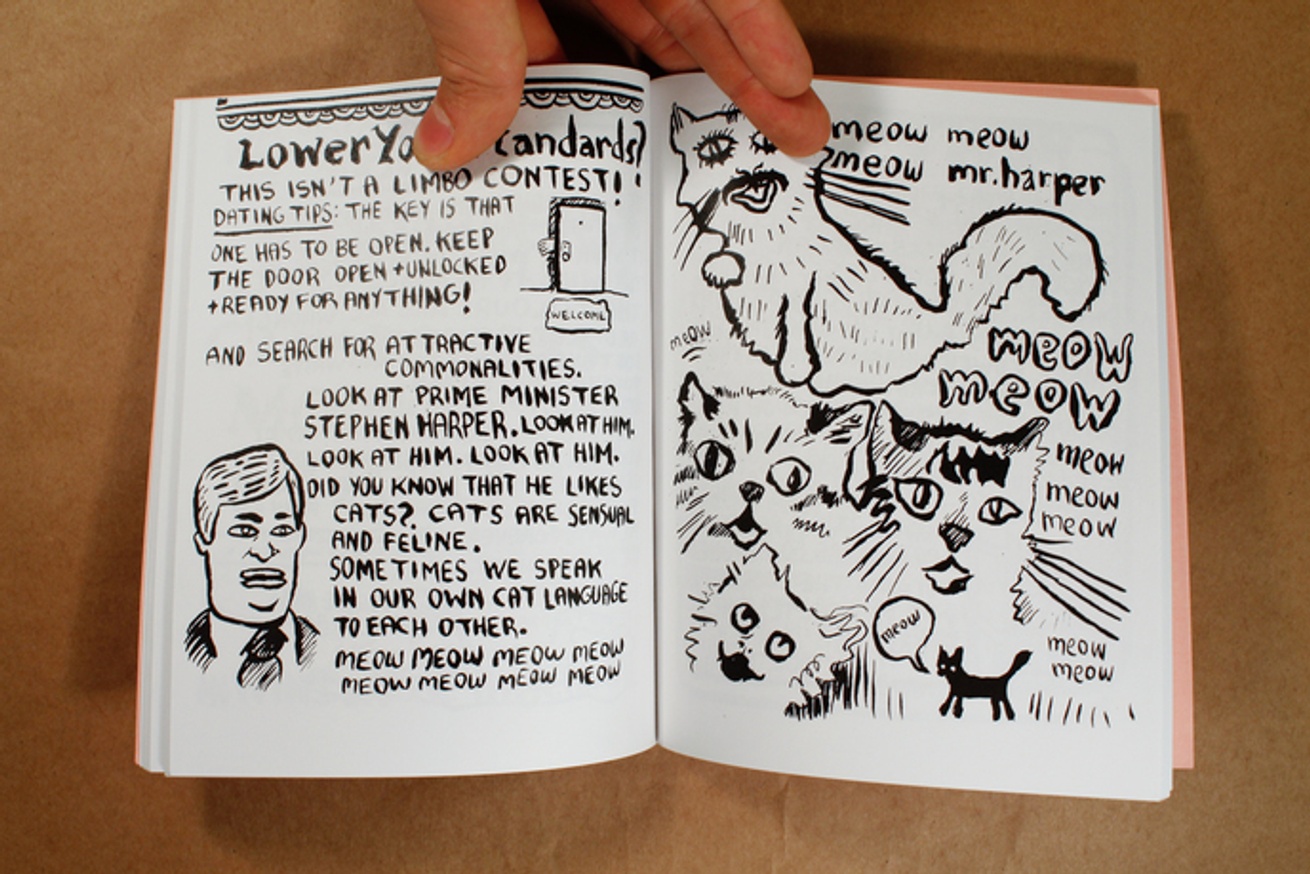 Lower Yo tandards?
THIS ISN'T A LIMBO CONTEST!
DATING TIPS: THE KEY IS THAT
ONE HAS TO BE OPEN. KEEP
THE DOOR OPEN + UNLOCKED
+ READY FOR ANYTHING!
WELCOME
AND SEARCH FOR ATTRACTIVE
COMMONALITIES.
LOOK AT PRIME MINISTER
STEPHEN HARPER. LOOK AT HIM.
LOOK AT HIM. LOOK AT HIM.
DID YOU KNOW THAT HE LIKES
CATS?. CATS ARE SENSUAL
AND FELINE.
SOMETIMES WE SPEAK
IN OUR OWN CAT LANGUAGE
TO EACH OTHER.
MEOW MEOW MEOW MEOW
MEOW MEOW MEOW MEOW
meow meow
meow mr. harper
meow
meow
meow
meow
meow
meow
meow
meow
meow